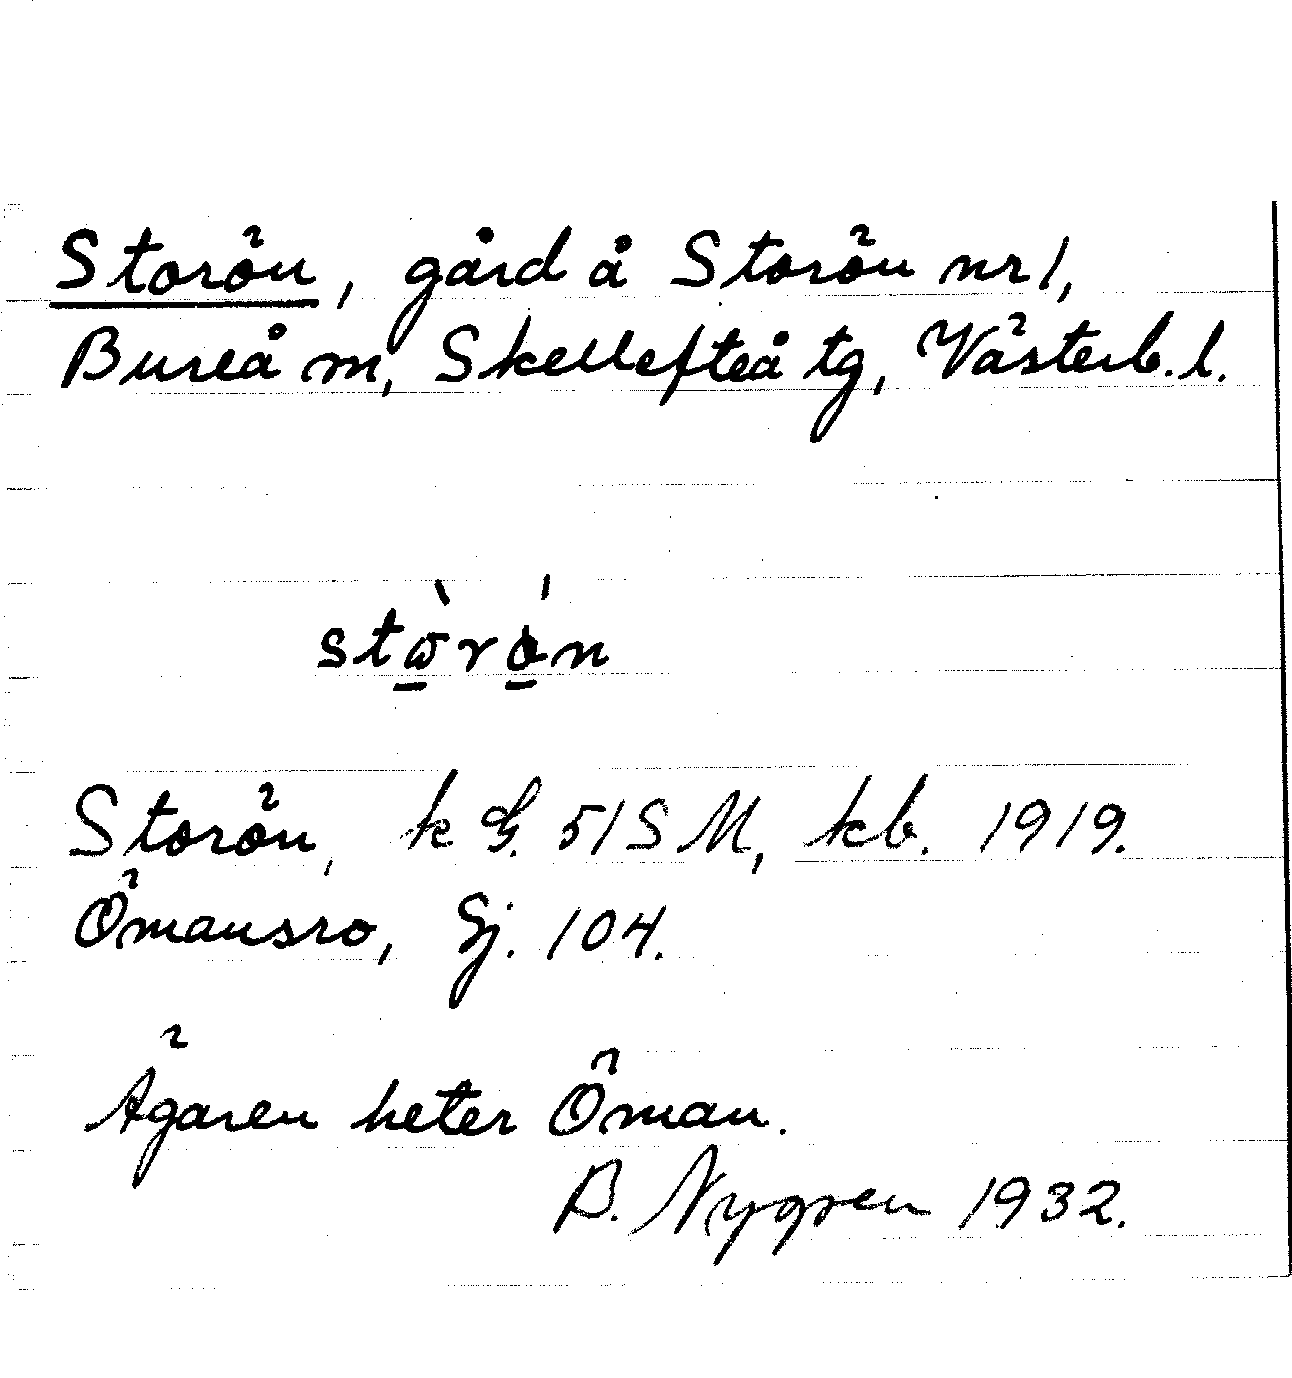 Storön, gård å Storön nr 1,
Bureå m, Skellefteå tg, Västerb. l.
Storön, k G. 51 S M, kb. 1919.
Ömansro, Gj. 104.
Ägaren heter Öman.
B. Nygren 1932.